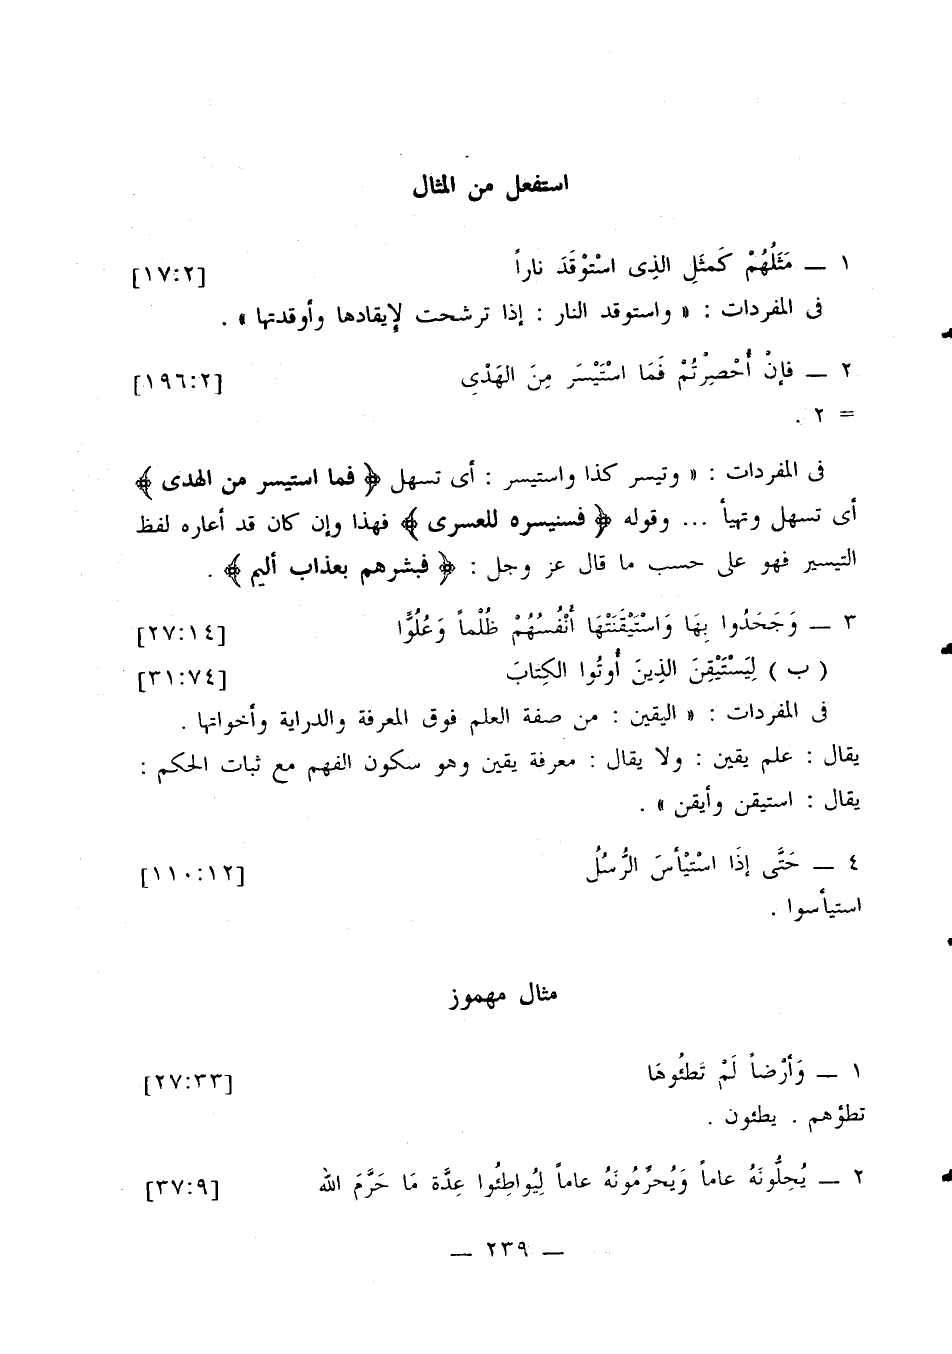 استفعل من المثال
١ ــ مَثَلُهُمْ كَمثَلِ الذِى اسْتَوْقَدَ ناراً [١٧:٢]
فى المفردات : « واستوقد النار : إذا ترشحت لإيقادها وأوقدتها » .
٢ ــ فإنْ أُحْصِرْتُمْ فَمَا اسْتَيْسَر مِنَ الهَدْىِ [١٩٦:٢]
= ٢ .
فى المفردات : « وتيسر كذا واستيسر : أى تسهل ﴿ فما استيسر من الهدى ﴾
أى تسهل وتهيأ ... وقوله ﴿ فسنيسره للعسرى ﴾ فهذا وإن كان قد أعاره لفظ
التيسير فهو على حسب ما قال عز وجل : ﴿ فبشرهم بعذاب أليم ﴾ .
٣ ــ وَجَحَدُوا بِهَا وَاسْتَيْقَنَتْهَا أَنْفُسُهُمْ ظُلْماً وَعُلُوًّا [٢٧:١٤]
( ب ) لِيَسْتَيْقِنَ الذِينَ أُوتُوا الكِتابَ [٣١:٧٤]
فى المفردات : « اليقين : من صفة العلم فوق المعرفة والدراية وأخواتها .
يقال : علم يقين : ولا يقال : معرفة يقين وهو سكون الفهم مع ثبات الحكم :
يقال : استيقن وأيقن » .
٤ ــ حَتَّى إذَا اسْتَيْأسَ الرُّسُلُ [١١٠:١٢]
استيأسوا .
مثال مهموز
١ ــ وَأرْضاً لَمْ تَطئُوهَا [٢٧:٣٣]
تطؤهم . يطئون .
٢ ــ يُحِلُّونَهُ عاماً وَيُحرِّمُونَهُ عاماً لِيُواطِئُوا عِدَّة مَا حَرَّمَ الله [٣٧:٩]
ــ ٢٣٩ ــ